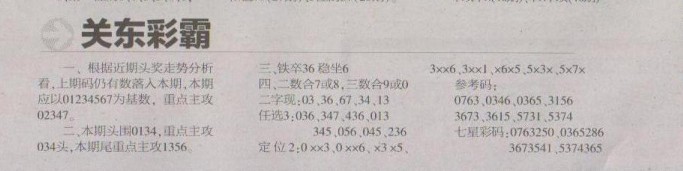 关东彩霸
一、根据近期头奖走势分析
看,上期码仍有数落入本期,本期
应以01234567为基数，重点主攻
02347。
二、本期头围0134,重点主攻
034头,本期尾重点主攻1356。
三、铁卒36 稳坐6
四、二数合7或8,三数合9或0
二字现:03、36、67、34、13
任选3:036、347、436、013
345、056、045、236
定位2:0××3、0××6、×3×5、
3××6、3××1、×6×5、5×3×、5×7×
参考码:
0763、0346、0365、3156
3673、3615、5731、5374
七星彩码:0763250、0365286
3673541、5374365